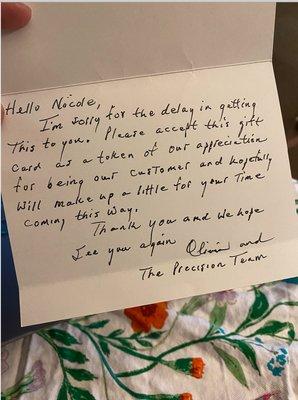 Hello Nicole,
I'm sorry for the delay in getting
This to you. Please accept this gift
card as a token of our appreciation
for being our customer and hopefully
will make up a little for your Time
coming this way.
Thank you and we hope
see you again Olivia and
The Precision Team